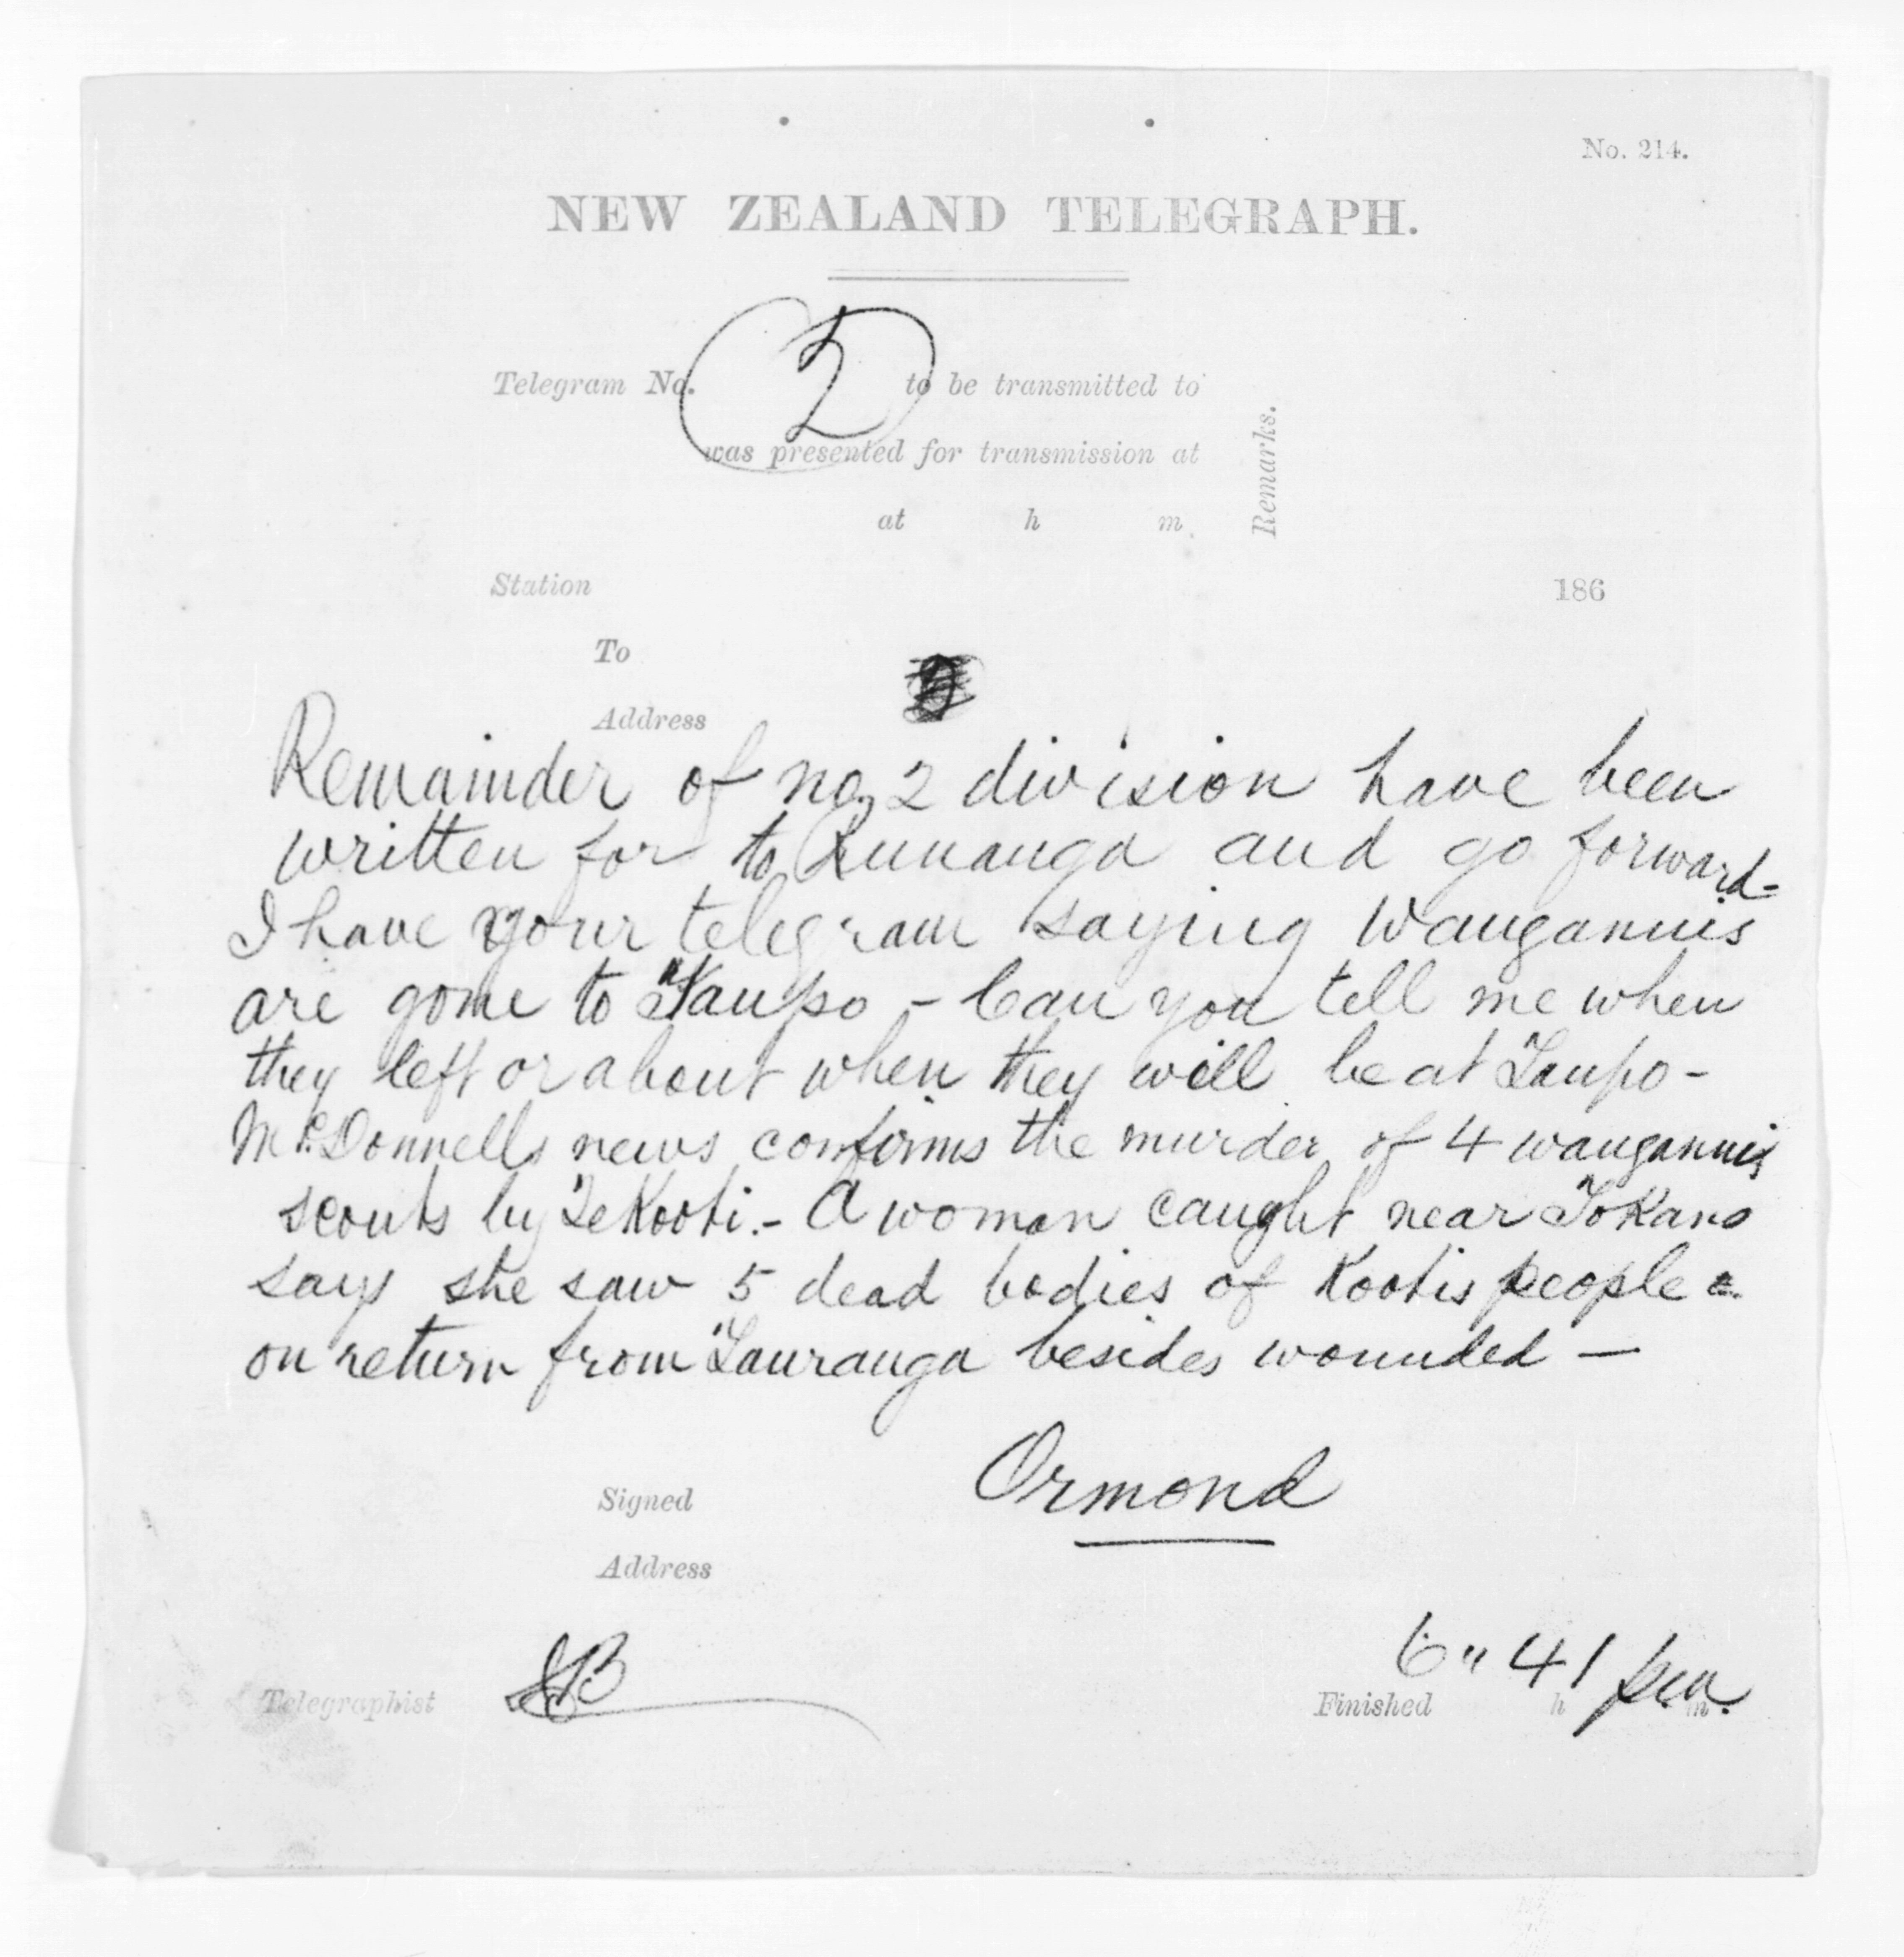 No. 214.
NEW ZEALAND TELEGRAPH.
Telegram No. 2 to be transmitted to
was presented for transmission at
at h m.
Remarks.
Station 186
To
Address
Remainder of no. 2 division have been
written for to Runanga and go forward-
I have your telegram saying Wangannis
are gone to Taupo - Can you tell me when
they left or about when they will be at Taupo -
McDonnells news confirms the murder of 4 wangannis
scouts by Te Kooti.- A woman caught near Tokano
says she saw 5 dead bodies of Kootis people
on return from Tauranga besides wounded —
Signed Ormond
Address
Telegraphist
Finished 6" 41 pm.
h m.